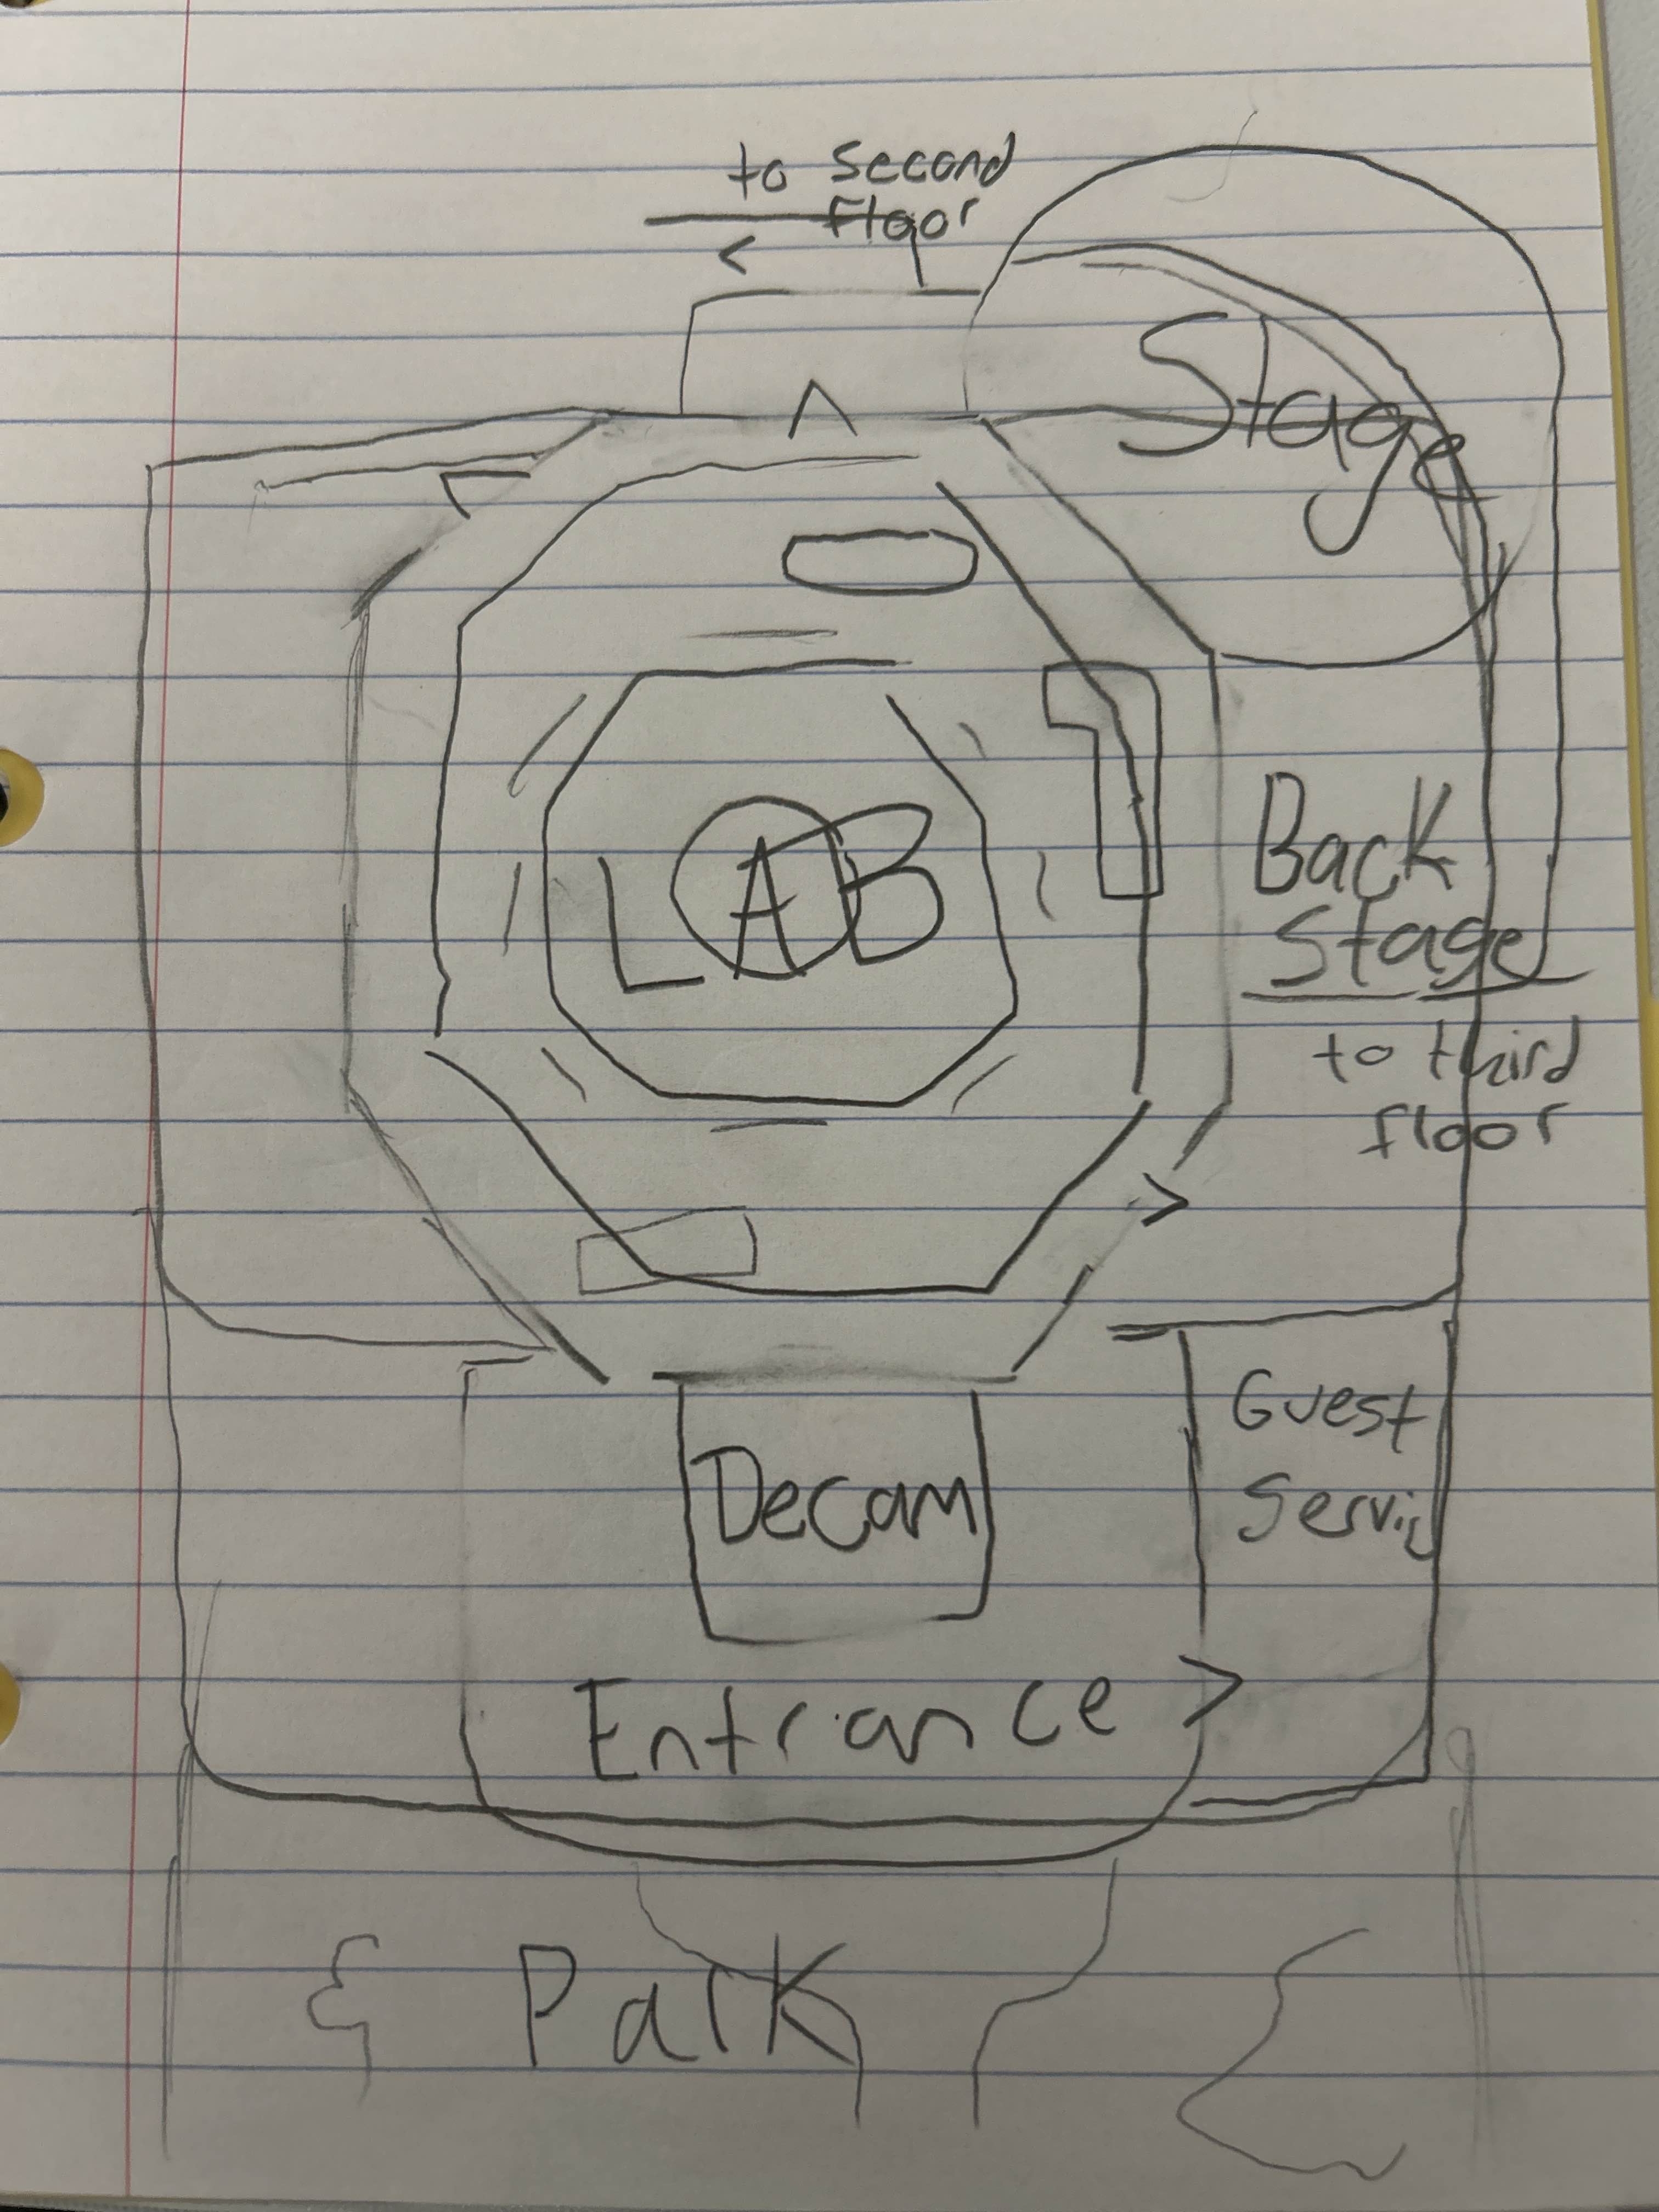 to second
floor
Stage
LAB
Back
Stage
to third
floor
Guest
Decam
Entrance
Park